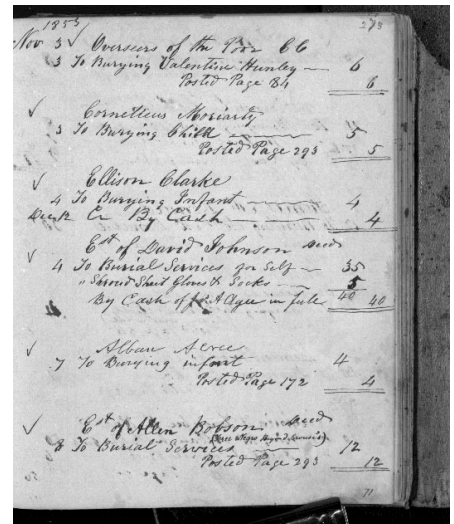 1853 293
Nov 3 ✓ Overseers of the Poor CC
3 To Burying Valentine Hunley — 6
Posted Page 84 6
✓ Cornelieus Moriarty
3 To Burying Child — 5
Posted Page 293 5
✓ Ellison Clarke
4 To Burying Infant — 4
Cr By Cash — 4
✓ Est of David Johnson Decd
4 To Burial Services for Self — 35
" Shroud Sheet Gloves & Socks — 5
By Cash of A Agee in full 40 40
✓ Alban Acree
7 To Burying infant 4
Posted Page 172 4
✓ Est of Allen Robson Decd
8 To Burial Services — 12
Posted Page 293 12
71